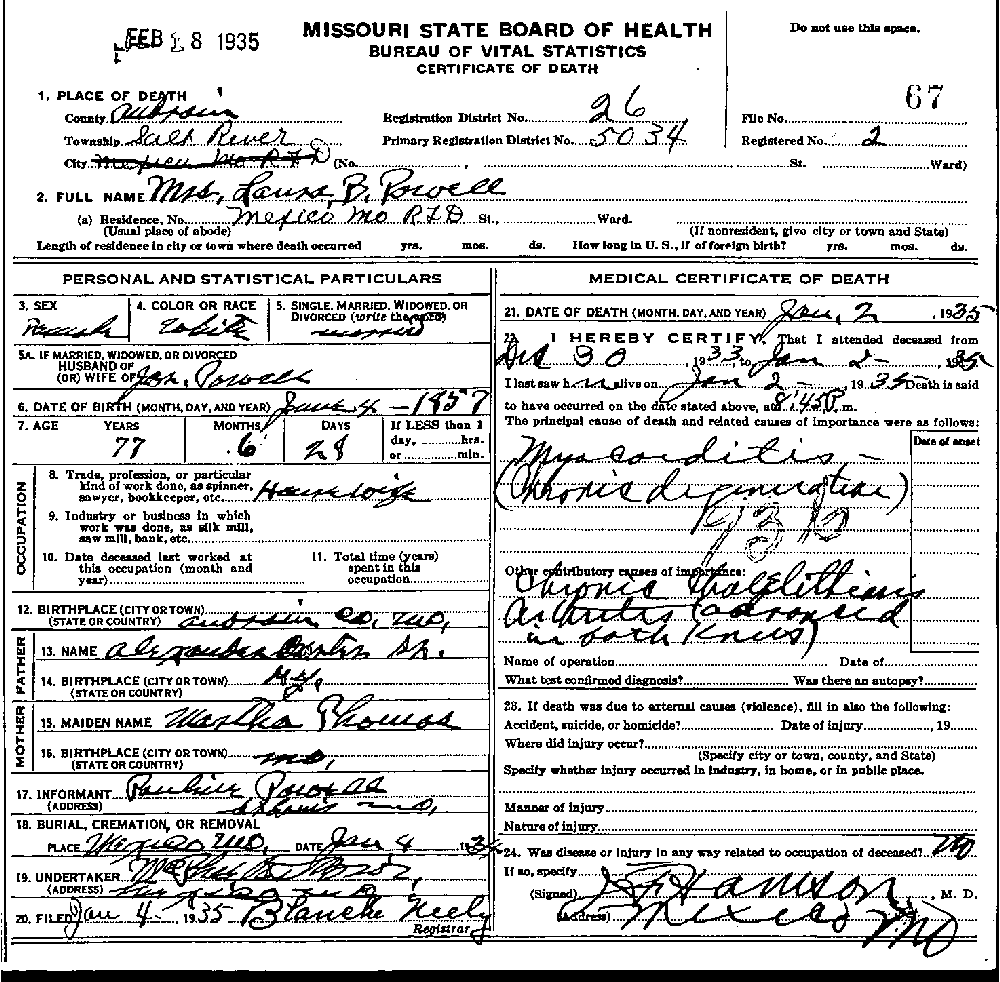 FEB 18 1935
MISSOURI STATE BOARD OF HEALTH
BUREAU OF VITAL STATISTICS
CERTIFICATE OF DEATH
Do not use this space.
67
1. PLACE OF DEATH
County Audrain
Township Salt River
City Mexico Mo RFD (No. , St. Ward)
Registration District No. 26
Primary Registration District No. 5034
File No.
Registered No. 2
2. FULL NAME Mrs, Laura B. Powell
(a) Residence, No. Mexico Mo RFD St., Ward.
(Usual place of abode) (If nonresident, give city or town and State)
Length of residence in city or town where death occurred yrs. mos. ds. How long in U. S., if of foreign birth? yrs. mos. ds.
PERSONAL AND STATISTICAL PARTICULARS
3. SEX
Female
4. COLOR OR RACE
White
5. SINGLE, MARRIED, WIDOWED, OR DIVORCED (write the word)
married
5A. IF MARRIED, WIDOWED, OR DIVORCED
HUSBAND OF
(OR) WIFE OF Powell
6. DATE OF BIRTH (MONTH, DAY, AND YEAR) June 4 - 1857
7. AGE YEARS MONTHS DAYS If LESS than 1
day, hrs.
or min.
77 6 28
OCCUPATION
8. Trade, profession, or particular
kind of work done, as spinner,
sawyer, bookkeeper, etc. Housewife
9. Industry or business in which
work was done, as silk mill,
saw mill, bank, etc.
10. Date deceased last worked at
this occupation (month and
year)
11. Total time (years)
spent in this
occupation
12. BIRTHPLACE (CITY OR TOWN)
(STATE OR COUNTRY) Audrain Co, Mo,
FATHER
13. NAME Alexander Sr.
14. BIRTHPLACE (CITY OR TOWN) Ky,
(STATE OR COUNTRY)
MOTHER
15. MAIDEN NAME Martha Thomas
16. BIRTHPLACE (CITY OR TOWN)
(STATE OR COUNTRY) Mo,
17. INFORMANT Pauline Powell
(ADDRESS) St Louis Mo,
18. BURIAL, CREMATION, OR REMOVAL
PLACE Mexico Mo, DATE Jan 4 1935
19. UNDERTAKER
(ADDRESS) Mexico Mo
20. FILED Jan 4- 1935 Blanche Neely
Registrar
MEDICAL CERTIFICATE OF DEATH
21. DATE OF DEATH (MONTH, DAY, AND YEAR) Jan, 2 , 1935
22. I HEREBY CERTIFY, That I attended deceased from
Dec 30 , 1933, to Jan 2- 1935
I last saw h alive on Jan 2 - 1935 Death is said
to have occurred on the date stated above, at 8:45 P. m.
The principal cause of death and related causes of importance were as follows:
Date of onset
Myocarditis -
(Chronic degenerative)
Other contributory causes of importance:
Chronic
Arthritis (advanced
in both knees)
Name of operation Date of
What test confirmed diagnosis? Was there an autopsy?
23. If death was due to external causes (violence), fill in also the following:
Accident, suicide, or homicide? Date of injury , 19
Where did injury occur?
(Specify city or town, county, and State)
Specify whether injury occurred in industry, in home, or in public place.
Manner of injury
Nature of injury
24. Was disease or injury in any way related to occupation of deceased? No
If so, specify
(Signed) Harrison , M. D.
(Address) Mexico Mo